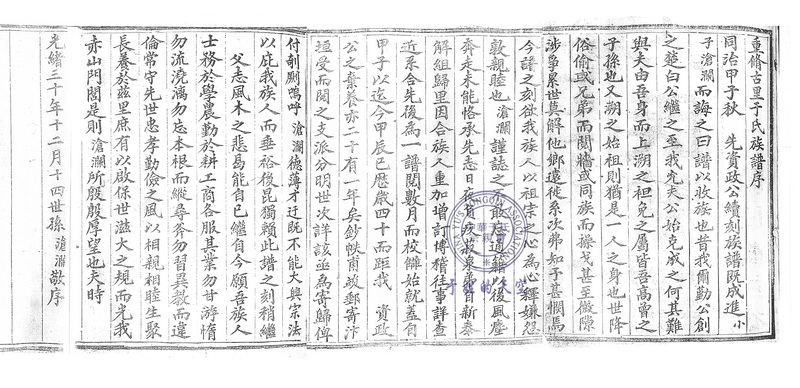 重脩古里于氏族譜序
同治甲子秋 先資政公續刻族譜既成進小
子滄瀾而誨之曰譜以收族也昔我爾勤公創
之楚白公繼之至我先大公始克成之何其難
與夫由吾身而上溯之袒免之屬皆吾高曾之
子孫也又溯之始祖則猶是一人之身也世降
俗偷或兄弟而鬩牆或同族而操戈甚至微隙
涉爭累世莫解他鄉遠徙系次弗知予甚憫焉
今譜之刻欲我族人以祖宗之心為心釋嫌怨
敦親睦也滄瀾謹誌之 敢忘通籍後風塵
奔走未能恪承先志日 自新泰
解組歸里因合族人重加增訂博稽往事詳查
近系合先後為一譜閱數月而校讎始就蓋自
甲子以迄今甲辰已歷歲四十而距我 資政
公之棄養亦二十有一年矣鈔帙甫竣郵寄汴
垣受而閱之支派分明世次詳該亟為寄歸俾
付剞劂嗚呼滄瀾德薄才迂既不能大興宗法
以庇我族人而垂裕後昆獨賴此譜之刻稍繼
父志風木之悲曷能自已繼自今願吾族人
士務於學農勤於耕工商各服其業勿甘游惰
勿流澆漓勿忘本根而縱尋斧勿習異教而違
倫常守先世忠孝勤儉之風以相親相睦生聚
長養於茲里庶有以啟保世滋大之規而光我
赤山門閭是則滄瀾所殷殷厚望也夫時
光緒三十年十二月十四世孫滄瀾敬序